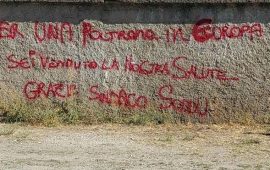 ER UNA POLTRONA IN EUROPA
SEI VENDUTO LA NOSTRA SALUTE
GRAZIE SINDACO